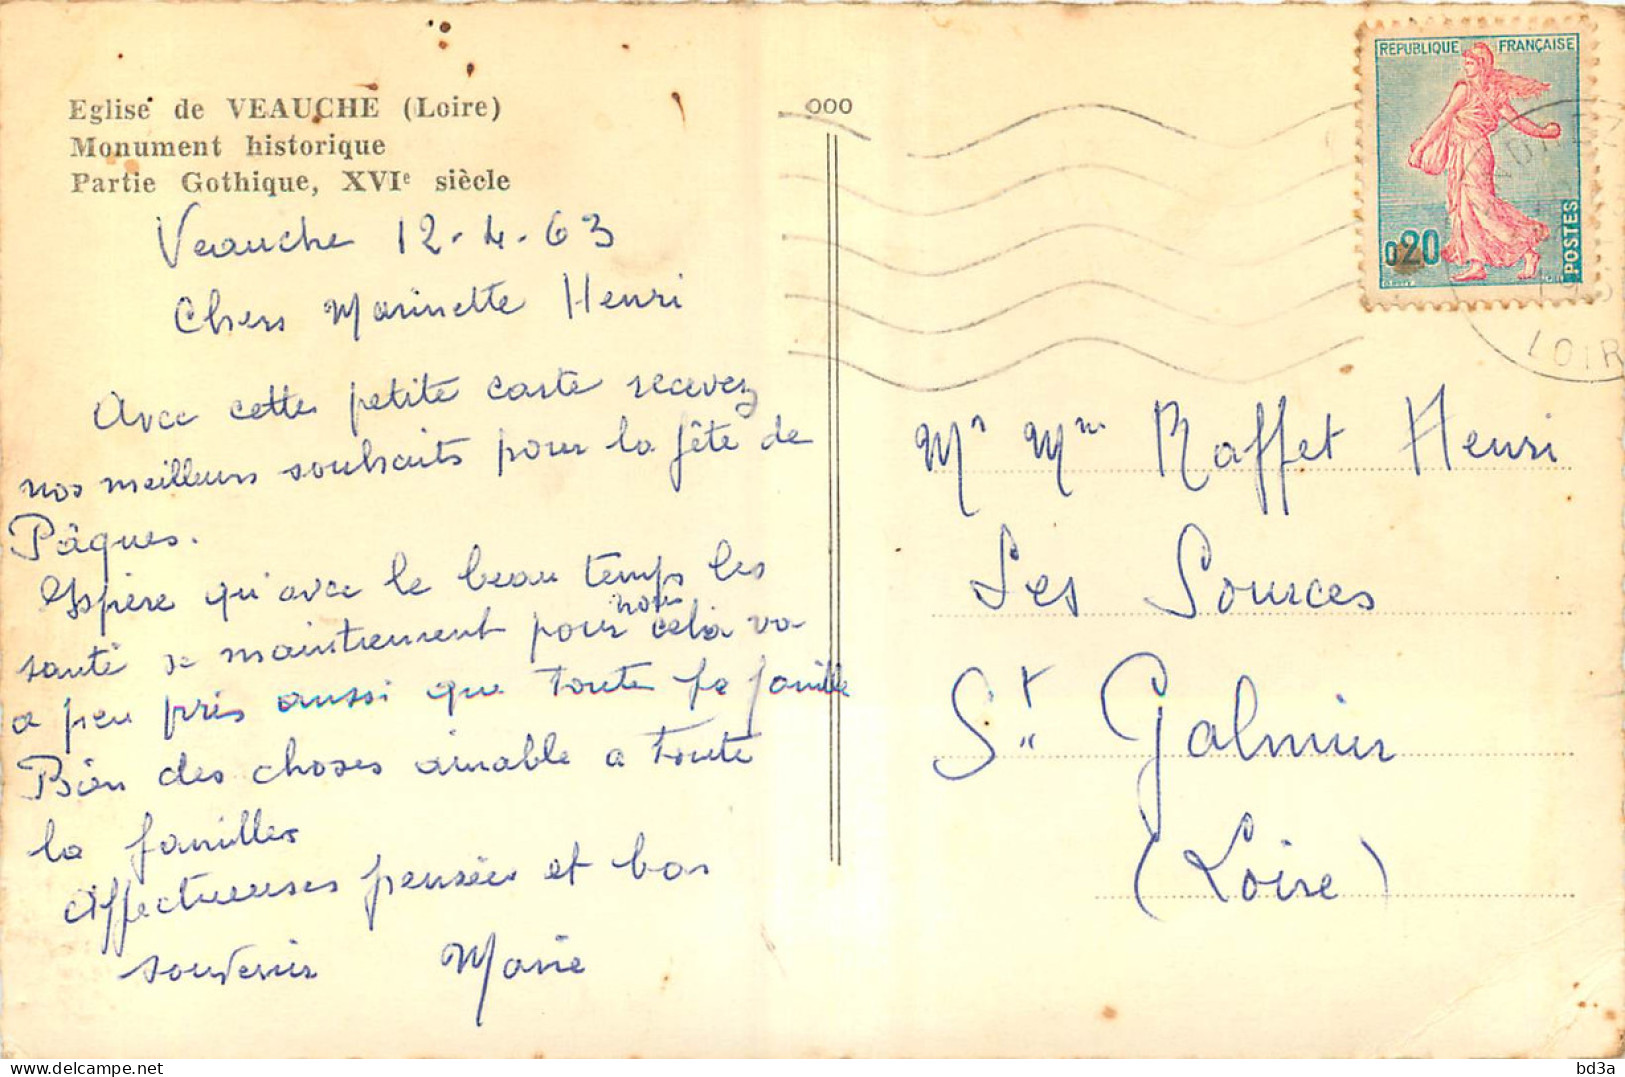 Eglise de VEAUCHE (Loire)
Monument historique
Partie Gothique, XVIe siècle
Veauche 12-4-63
Chers Marinette Henri
Avec cette petite carte recevez
nos meilleurs souhaits pour la fête de
Pâques.
Espère qu'avec le beau temps les
santé se maintiennent pour nous cela va
a peu près aussi que toute la famille
Bien des choses aimable a toute
la familles
Affectueuses pensées et bon
souvenir Marie
000
REPUBLIQUE FRANÇAISE
0,20
POSTES
LOIR
Mr Mme Raffet Henri
Les Sources
St Galmier
(Loire)
bd3a